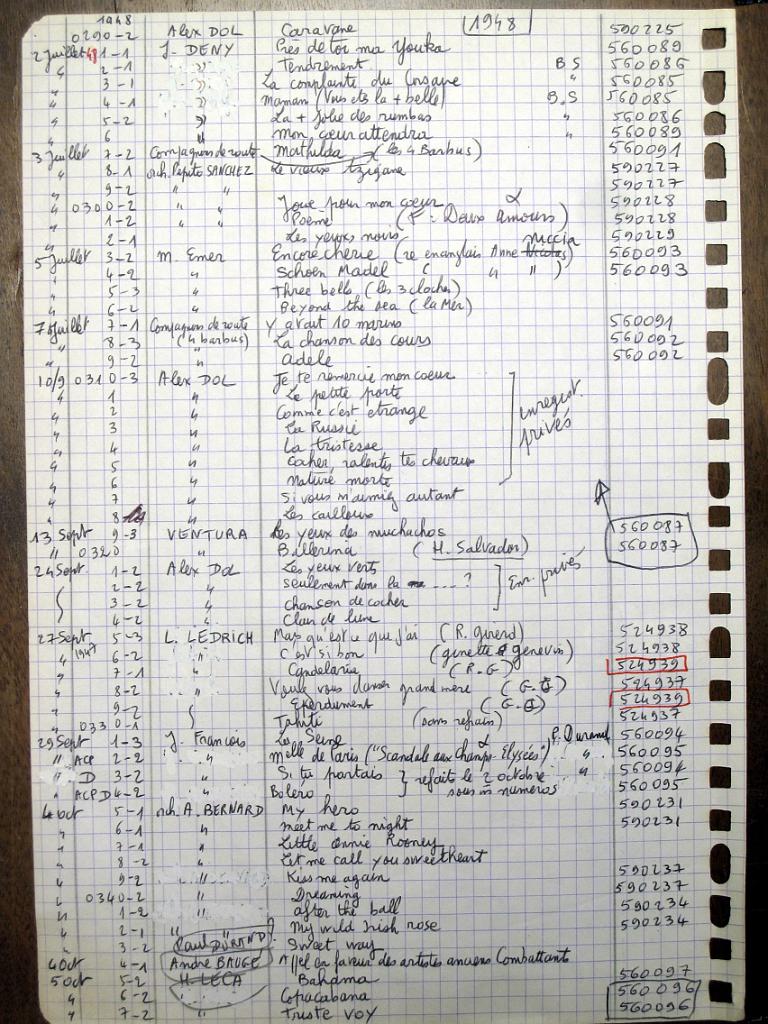 1948 1948
0290-2 Alex DOL Caravane 590225
2 Juillet 48 1-1 J. DENY Près de toi ma Youka 560089
" 2-1 " Tendrement B S 560086
" 3-1 " La complainte du Corsaire " 560085
" 4-1 " Maman (Vous êtes la + belle) B.S 560085
" 5-2 " La + Jolie des rumbas " 560086
" 6 " mon cœur attendra " 560089
3 Juillet 7-2 Compagnons de route Mathilda (les 4 Barbus) 560091
" 8-1 orch. Pepito SANCHEZ Le vieux tzigane 590227
" 9-2 " " 590227
" 0300-2 " " Joue pour mon coeur 590228
" 1-2 " " Poème (F: Deux amours) 590228
" 2-1 Les yeux noirs 590229
5 Juillet 3-2 M. Emer Encore cherie (re en anglais Anne Niccia) 560093
" 4-2 " Schoen Madel ( " " ) 560093
" 5-3 " Three bells (les 3 cloches)
" 6-2 " Beyond the sea (la Mer)
7 Juillet 7-1 Compagnons de route Y avait 10 marins 560091
" 8-3 (4 barbus) La chanson des cours 560092
" 9-2 " adele 560092
10/9 0310-3 Alex DOL Je te remercie mon coeur
" 1 " La petite porte
" 2 " Comme c'est etrange enregist. privés
" 3 " La Russie
" 4 " La tristesse
" 5 " Cocher, ralentis tes chevaux
" 6 " Nature morte
" 7 " Si vous m'aimiez autant
" 8 " Les cailloux
13 Sept 9-3 VENTURA Les yeux des muchachos 560087
" 0320 " Ballerina (H. Salvador) 560087
24 Sept 1-2 Alex DOL Les yeux verts
2-2 " seulement dans la ....? Enr. privés
3-2 " chanson de cocher
4-2 " Clair de lune
27 Sept 5-3 L. LEDRICH Mais qu'est ce que j'ai (R. Girerd) 524938
" 1947 6-2 " C'est si bon (ginette genevis) 524938
" 7-1 " Candelaria (R-G) 524939
" 8-2 " Veule vous danser grand mere (G-G) 524937
" 9-2 Eperdument (G-G) 524939
" 0330-1 Tahiti (sans refrain) 524937
29 Sept 1-3 J. Francois La Seine P. Durand 560094
" ACP 2-2 " Melle de Paris ("Scandale aux Champs Elysées") " 560095
" D 3-2 " Si tu partais } refait le 2 octobre " 560094
" ACPD 4-2 " Bolero sous m̂ numeros 560095
4 oct 5-1 orch. A. BERNARD My hero 590231
" 6-1 " meet me to night 590231
" 7-1 " Little annie Rooney
" 8-2 " Let me call you sweetheart
" 9-2 " Kiss me again 590237
" 0340-2 " Dreaming 590237
" 1-2 " after the ball 590234
" 2-1 " My wild Irish rose 590234
" 3-2 Paul DURAND? Sweet way
4 Oct 4-1 André BAUGE Appel en faveur des artistes anciens Combattants
5 oct 5-2 H. LECA Bahama 560097
" 6-2 " Copacabana 560096
" 7-2 " Triste VOY 560096